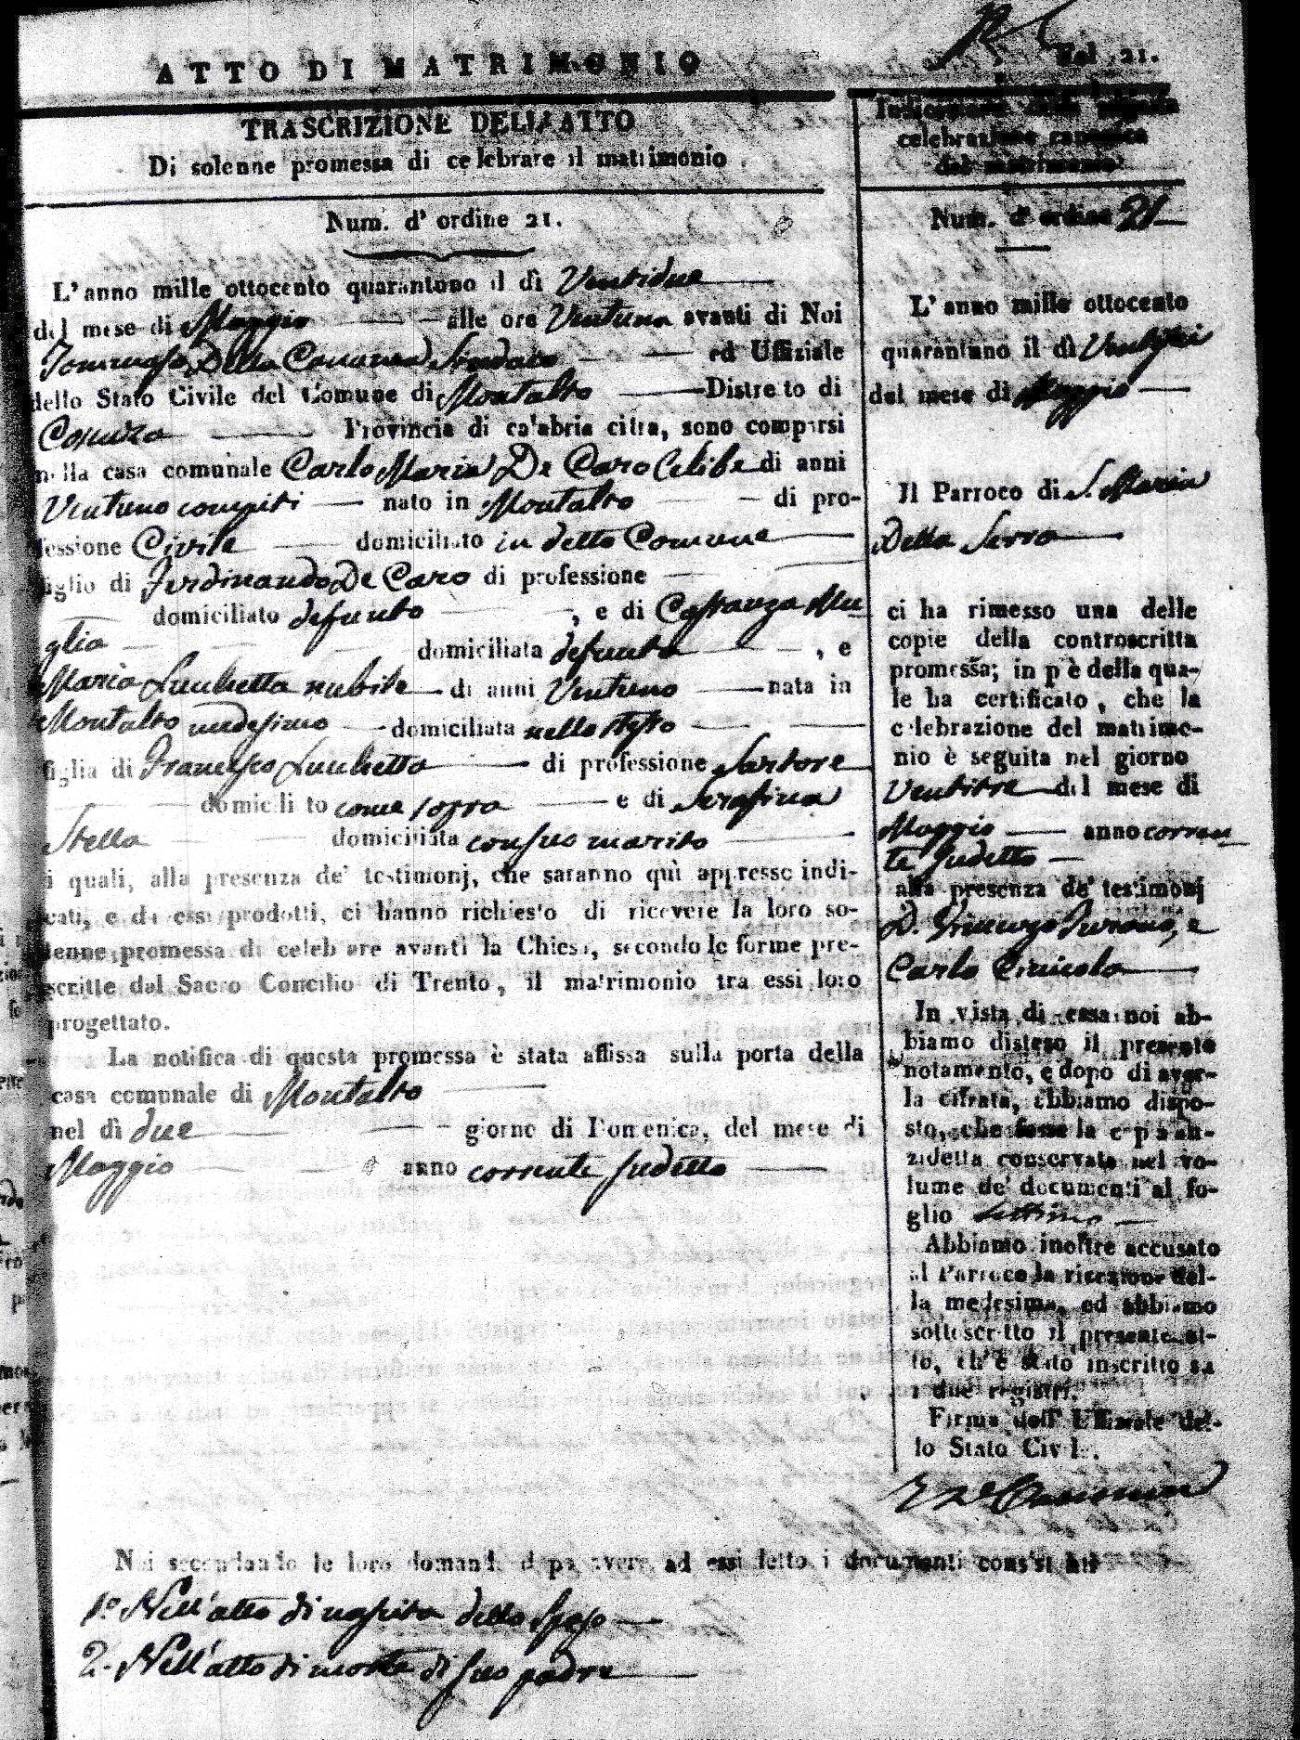 Fol. 21.
ATTO DI MATRIMONIO
TRASCRIZIONE DELL'ATTO
Di solenne promessa di celebrare il matrimonio.
Num. d' ordine 21.
L'anno mille ottocento quarantuno il dì Ventidue
del mese di Maggio alle ore Ventuna avanti di Noi
Tommaso Della Sindaco ed Uffiziale
dello Stato Civile del Comune di Montalto Distretto di
Cosenza Provincia di calabria citra, sono comparsi
nella casa comunale Carlo Maria De Caro Celibe di anni
Ventuno compiti nato in Montalto di pro-
fessione Civile domiciliato in detto Comune
figlio di Ferdinando De Caro di professione
domiciliato defunto , e di Costanza Mu
glia domiciliata defunta , e
Maria Luchetta nubile di anni Ventuno nata in
Montalto medesimo domiciliata nello stesso
figlia di Francesco Luchetta di professione Sartore
domiciliato come sopra e di Serafina
Stella domiciliata con suo marito
i quali, alla presenza de' testimonj, che saranno quì appresso indi-
cati, e da essi prodotti, ci hanno richiesto di ricevere la loro so-
lenne promessa di celebrare avanti la Chiesa, secondo le forme pre-
scritte dal Sacro Concilio di Trento, il matrimonio tra essi loro
progettato.
La notifica di questa promessa è stata affissa sulla porta della
casa comunale di Montalto
nel dì due giorno di Domenica, del mese di
Maggio anno corrente sudetto
Indicazione della seguita
celebrazione canonica
del matrimonio
Num. d' ordine 21
L' anno mille ottocento
quarantuno il dì Ventisei
del mese di Maggio
Il Parroco di S. Maria
Della Serra
ci ha rimesso una delle
copie della controscritta
promessa; in piè della qua-
le ha certificato, che la
celebrazione del matrimo-
nio è seguita nel giorno
Ventitre del mese di
Maggio anno corren
te sudetto
alla presenza de' testimonj
D. Vincenzo e
Carlo
In vista di essa noi ab-
biamo disteso il presente
notamento, e dopo di aver-
la cifrata, abbiamo dispo-
sto, che fosse la copia an-
zidetta conservata nel vo-
lume de' documenti al fo-
glio settimo
Abbiamo inoltre accusato
al Parroco la ricezione del-
la medesima, ed abbiamo
sottoscritto il presente at-
to, ch'è stato inscritto su
i due registri.
Firma dell' Uffiziale del-
lo Stato Civile.
Noi secondando le loro domande dopo avere ad essi letto i documenti consistenti
1º Nell'atto di nascita dello sposo
2. Nell'atto di morte di suo padre